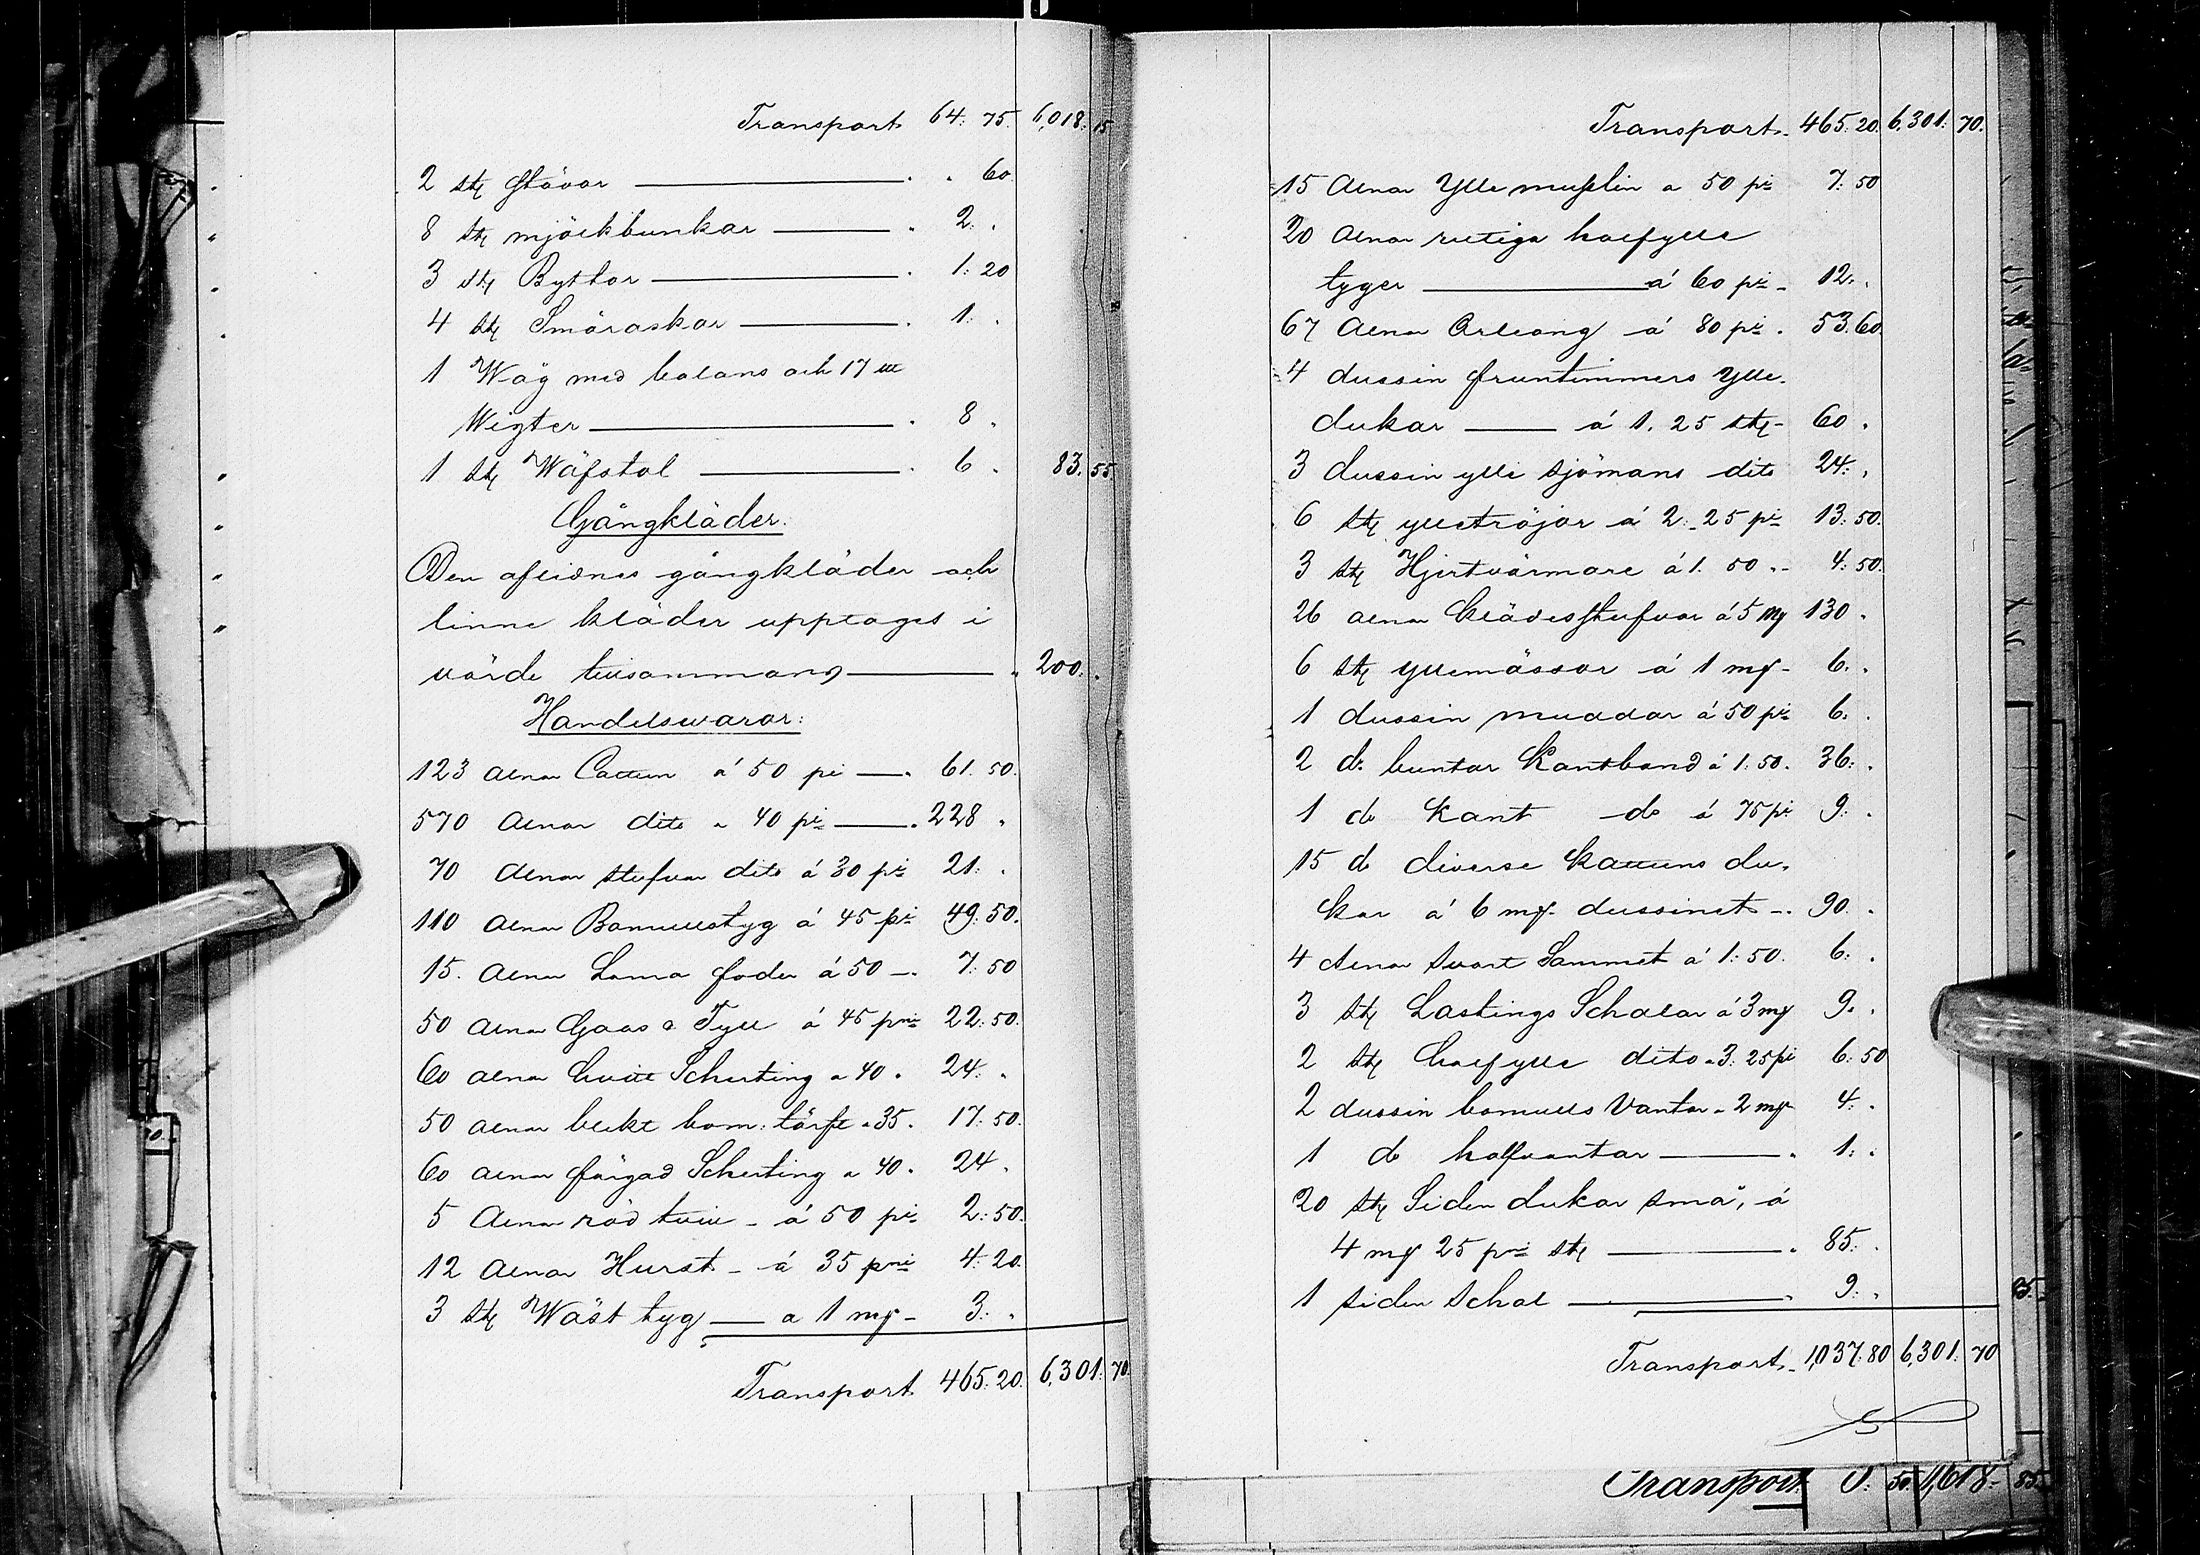 Transport 64: 75. 6,018: 15
2 stq Stövor . . 60.
8 stq mjölkbunkar . 2. .
3 stq Byttor . 1: 20
4 stq Smöraskar . 1: .
1 Wåg med balans och 17 ℔
Wigter . 8 .
1 stq Wäfstol . 6 . 83. 55.
Gångkläder:
Den aflidnes gångkläder och
linne kläder upptages i
värde tillsammans . 200. .
Handelswaror:
123 Alnar Cattun á 50 pi . 61. 50.
570 Alnar dito " 40 pi . 228 .
70 Alnar stufvar dito á 30 pi 21: .
110 Alnar Bomullstyg á 45 pi 49: 50.
15. Alnar Lama foder á 50 . 7: 50
50 Alnar Gaas o Tyll á 45 pni 22: 50.
60 Alnar hvitt Schirting " 40 . 24: .
50 Alnar blekt bom: lärft " 35. 17: 50.
60 Alnar färgad Scherting " 40. 24 .
5 Alnar röd tvill - á 50 pi 2: 50.
12 Alnar Hurst - á 35 pni 4: 20.
3 stq Wäst tyg a 1 mk - 3: .
Transport 465: 20. 6,301: 70.
Transport. 465: 20. 6,301: 70.
15 Alnar Ylle musslin a 50 pi 7: 50
20 Alnar rutiga halfylle
tyger á 60 pi - 12. .
67 Alnar Orleang á 80 pi . 53. 60.
4 dussin fruntimmers Ylle-
dukar á 1. 25 stq - 60 .
3 dussin ylle sjömans dito 24: .
6 stq ylletröjor á 2: 25 pi 13: 50.
3 stq Hjertvärmare á 1. 50 . - 4: 50.
26 alnar klädesstufvar á 5 mk 130 .
6 stq yllemössor á 1 mk - 6. .
1 dussin muddar á 50 pi 6. .
2 d: buntar Kantband á 1: 50. 36: .
1 do Kant do á 75 pi 9: .
15 do diverse kattuns du-
kar á 6 mk dussinet -. 90. .
4 Alnar svart Sammet á 1: 50. 6: .
3 stq Lastings Schalar á 3 mk 9. .
2 stq halfylle dito " 3: 25 pi 6: 50
2 dussin bomulls Vantar " 2 mk 4: .
1 do halfvantar . 1: .
20 stq Siden dukar små, á
4 mk 25 pni stq . 85: .
1 siden schal . 9: .
Transport. 1,037: 80 6,301: 70
Transport 50. 1,618- 85.